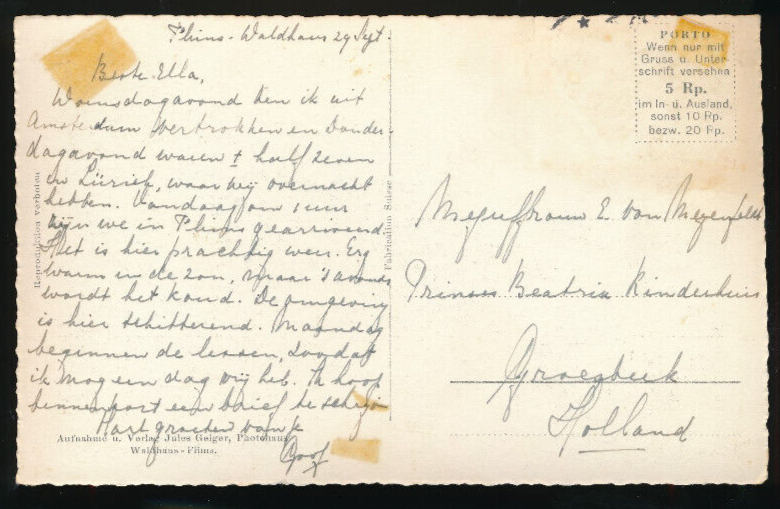 Flims-Waldhaus 29 Sept.
Beste Ella,
Woensdagavond ben ik uit
Amsterdam vertrokken en Donder-
dagavond waren ± half zeven
in Zürich, waar wij overnacht
hebben. Vandaag om 1 uur
zijn we in Flims gearriveerd.
Het is hier prachtig weer. Erg
warm in de zon, maar 's avonds
wordt het koud. De omgeving
is hier schitterend. Maandag
beginnen de lessen, zoodat
ik nog een dag vrij heb. Ik hoop
binnenkort een brief te schrijven
Hart. groeten van je
Reproduktion verboten
Aufnahme u. Verlag Jules Geiger, Photohaus
Waldhaus-Flims.
Fabrication Suisse
PORTO
Wenn nur mit
Gruss u. Unter
schrift versehen
5 Rp.
im In- u. Ausland,
sonst 10 Rp.
bezw. 20 Rp.
Mejuffrouw E. van Meyenfeldt
Prinses Beatrix Kinderhuis
Groesbeek
Holland